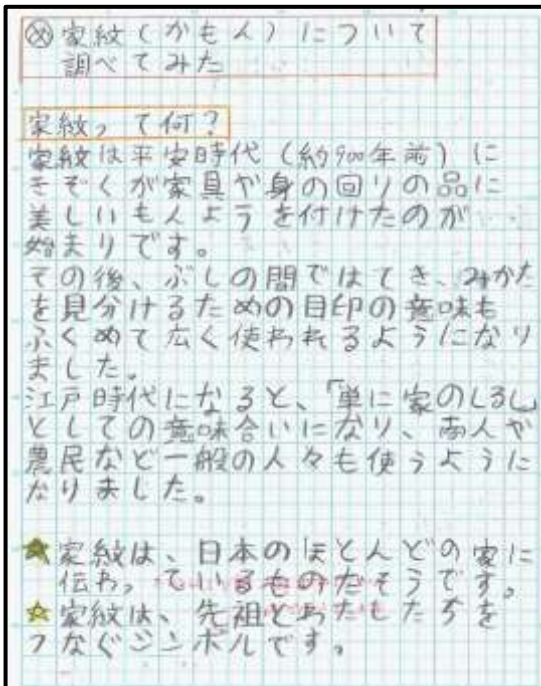 ㊂家紋(かもん)について
調べてみた
家紋って何?
家紋は平安時代(約900年前)に
きぞくが家具や身の回りの品に
美しいもんようを付けたのが
始まりです。
その後、ぶしの間ではてき、みかた
を見分けるための目印の意味も
ふくめて広く使われるようになり
ました。
江戸時代になると、「単に家のしるし」
としての意味合いになり、商人や
農民など一般の人々も使うように
なりました。
★家紋は、日本のほとんどの家に
伝わっているものだそうです。
★家紋は、先祖とわたしたちを
つなぐシンボルです。